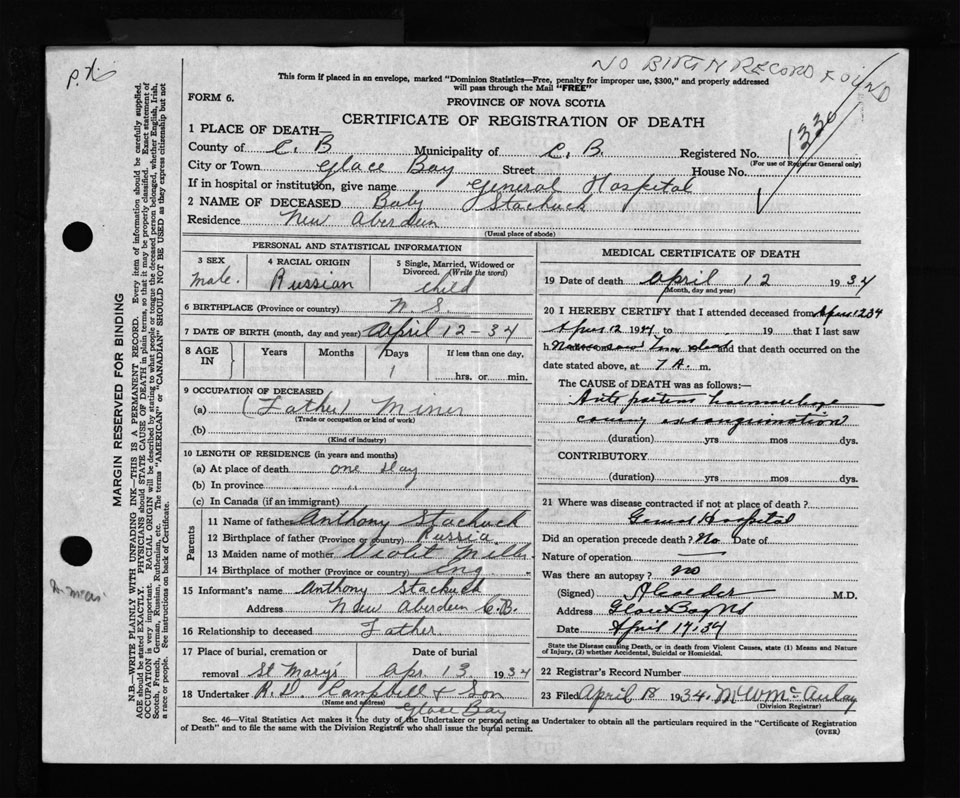 NO BIRTH RECORD FOUND
This form if placed in an envelope, marked "Dominion Statistics—Free, penalty for improper use, $300," and properly addressed
will pass through the Mail "FREE"
FORM 6.
PROVINCE OF NOVA SCOTIA
CERTIFICATE OF REGISTRATION OF DEATH
1 PLACE OF DEATH—
County of C. B Municipality of C. B. Registered No. 1330
(For use of Registrar General only)
City or Town Glace Bay Street House No.
If in hospital or institution, give name General Hospital
2 NAME OF DECEASED Baby Stachuck
Residence New Aberdeen
(Usual place of abode)
PERSONAL AND STATISTICAL INFORMATION
3 SEX
male.
4 RACIAL ORIGIN
Russian
5 Single, Married, Widowed or
Divorced. (Write the word)
child
6 BIRTHPLACE (Province or country) N. S.
7 DATE OF BIRTH (month, day and year) April 12-34
8 AGE IN Years Months Days If less than one day,
1 hrs. or min.
9 OCCUPATION OF DECEASED
(a) (Father) Miner
(Trade or occupation or kind of work)
(b)
(Kind of industry)
10 LENGTH OF RESIDENCE (in years and months)
(a) At place of death one day
(b) In province " "
(c) In Canada (if an immigrant)
Parents
11 Name of father Anthony Stachuck
12 Birthplace of father (Province or country) Russia.
13 Maiden name of mother Violet Mills
14 Birthplace of mother (Province or country) Eng
15 Informant's name Anthony Stachuck
Address New Aberdeen C.B.
16 Relationship to deceased Father
17 Place of burial, cremation or Date of burial
removal St Mary's Apr. 13 1934
18 Undertaker A. D. Campbell & Son
(Name and address)
Glace Bay
MEDICAL CERTIFICATE OF DEATH
19 Date of death April 12 1934
(Month, day and year)
20 I HEREBY CERTIFY that I attended deceased from April 12 34
April 12 1934 to 19 that I last saw
h and that death occurred on the
date stated above, at 7 A. m.
The CAUSE of DEATH was as follows:—
Ante partum haemorrhage
causing exsanguination
(duration) yrs mos dys.
CONTRIBUTORY
(duration) yrs mos dys.
21 Where was disease contracted if not at place of death?
General Hospital
Did an operation precede death? No Date of
Nature of operation
Was there an autopsy? no
(Signed) M.D.
Address Glace Bay NS
Date April 17.34
State the Disease causing Death, or in death from Violent Causes, state (1) Means and Nature
of Injury, (2) whether Accidental, Suicidal or Homicidal.
22 Registrar's Record Number
23 Filed April 18 1934. M W McAulay
(Division Registrar)
Sec. 46—Vital Statistics Act makes it the duty of the Undertaker or person acting as Undertaker to obtain all the particulars required in the "Certificate of Registration
of Death" and to file the same with the Division Registrar who shall issue the burial permit.
(OVER)
MARGIN RESERVED FOR BINDING
N.B.—WRITE PLAINLY WITH UNFADING INK—THIS IS A PERMANENT RECORD. Every item of information should be carefully supplied.
AGE should be stated EXACTLY. PHYSICIANS should STATE CAUSE OF DEATH in plain terms, so that it may be properly classified. Exact statement of
OCCUPATION is very important. RACIAL ORIGIN will be described by stating to what people or tongue the deceased person belonged, whether English, Irish,
Scotch, French, German, Russian, Ruthenian, etc. The terms "AMERICAN" or "CANADIAN" SHOULD NOT BE USED as they express citizenship but not
a race or people. See instructions on back of Certificate.